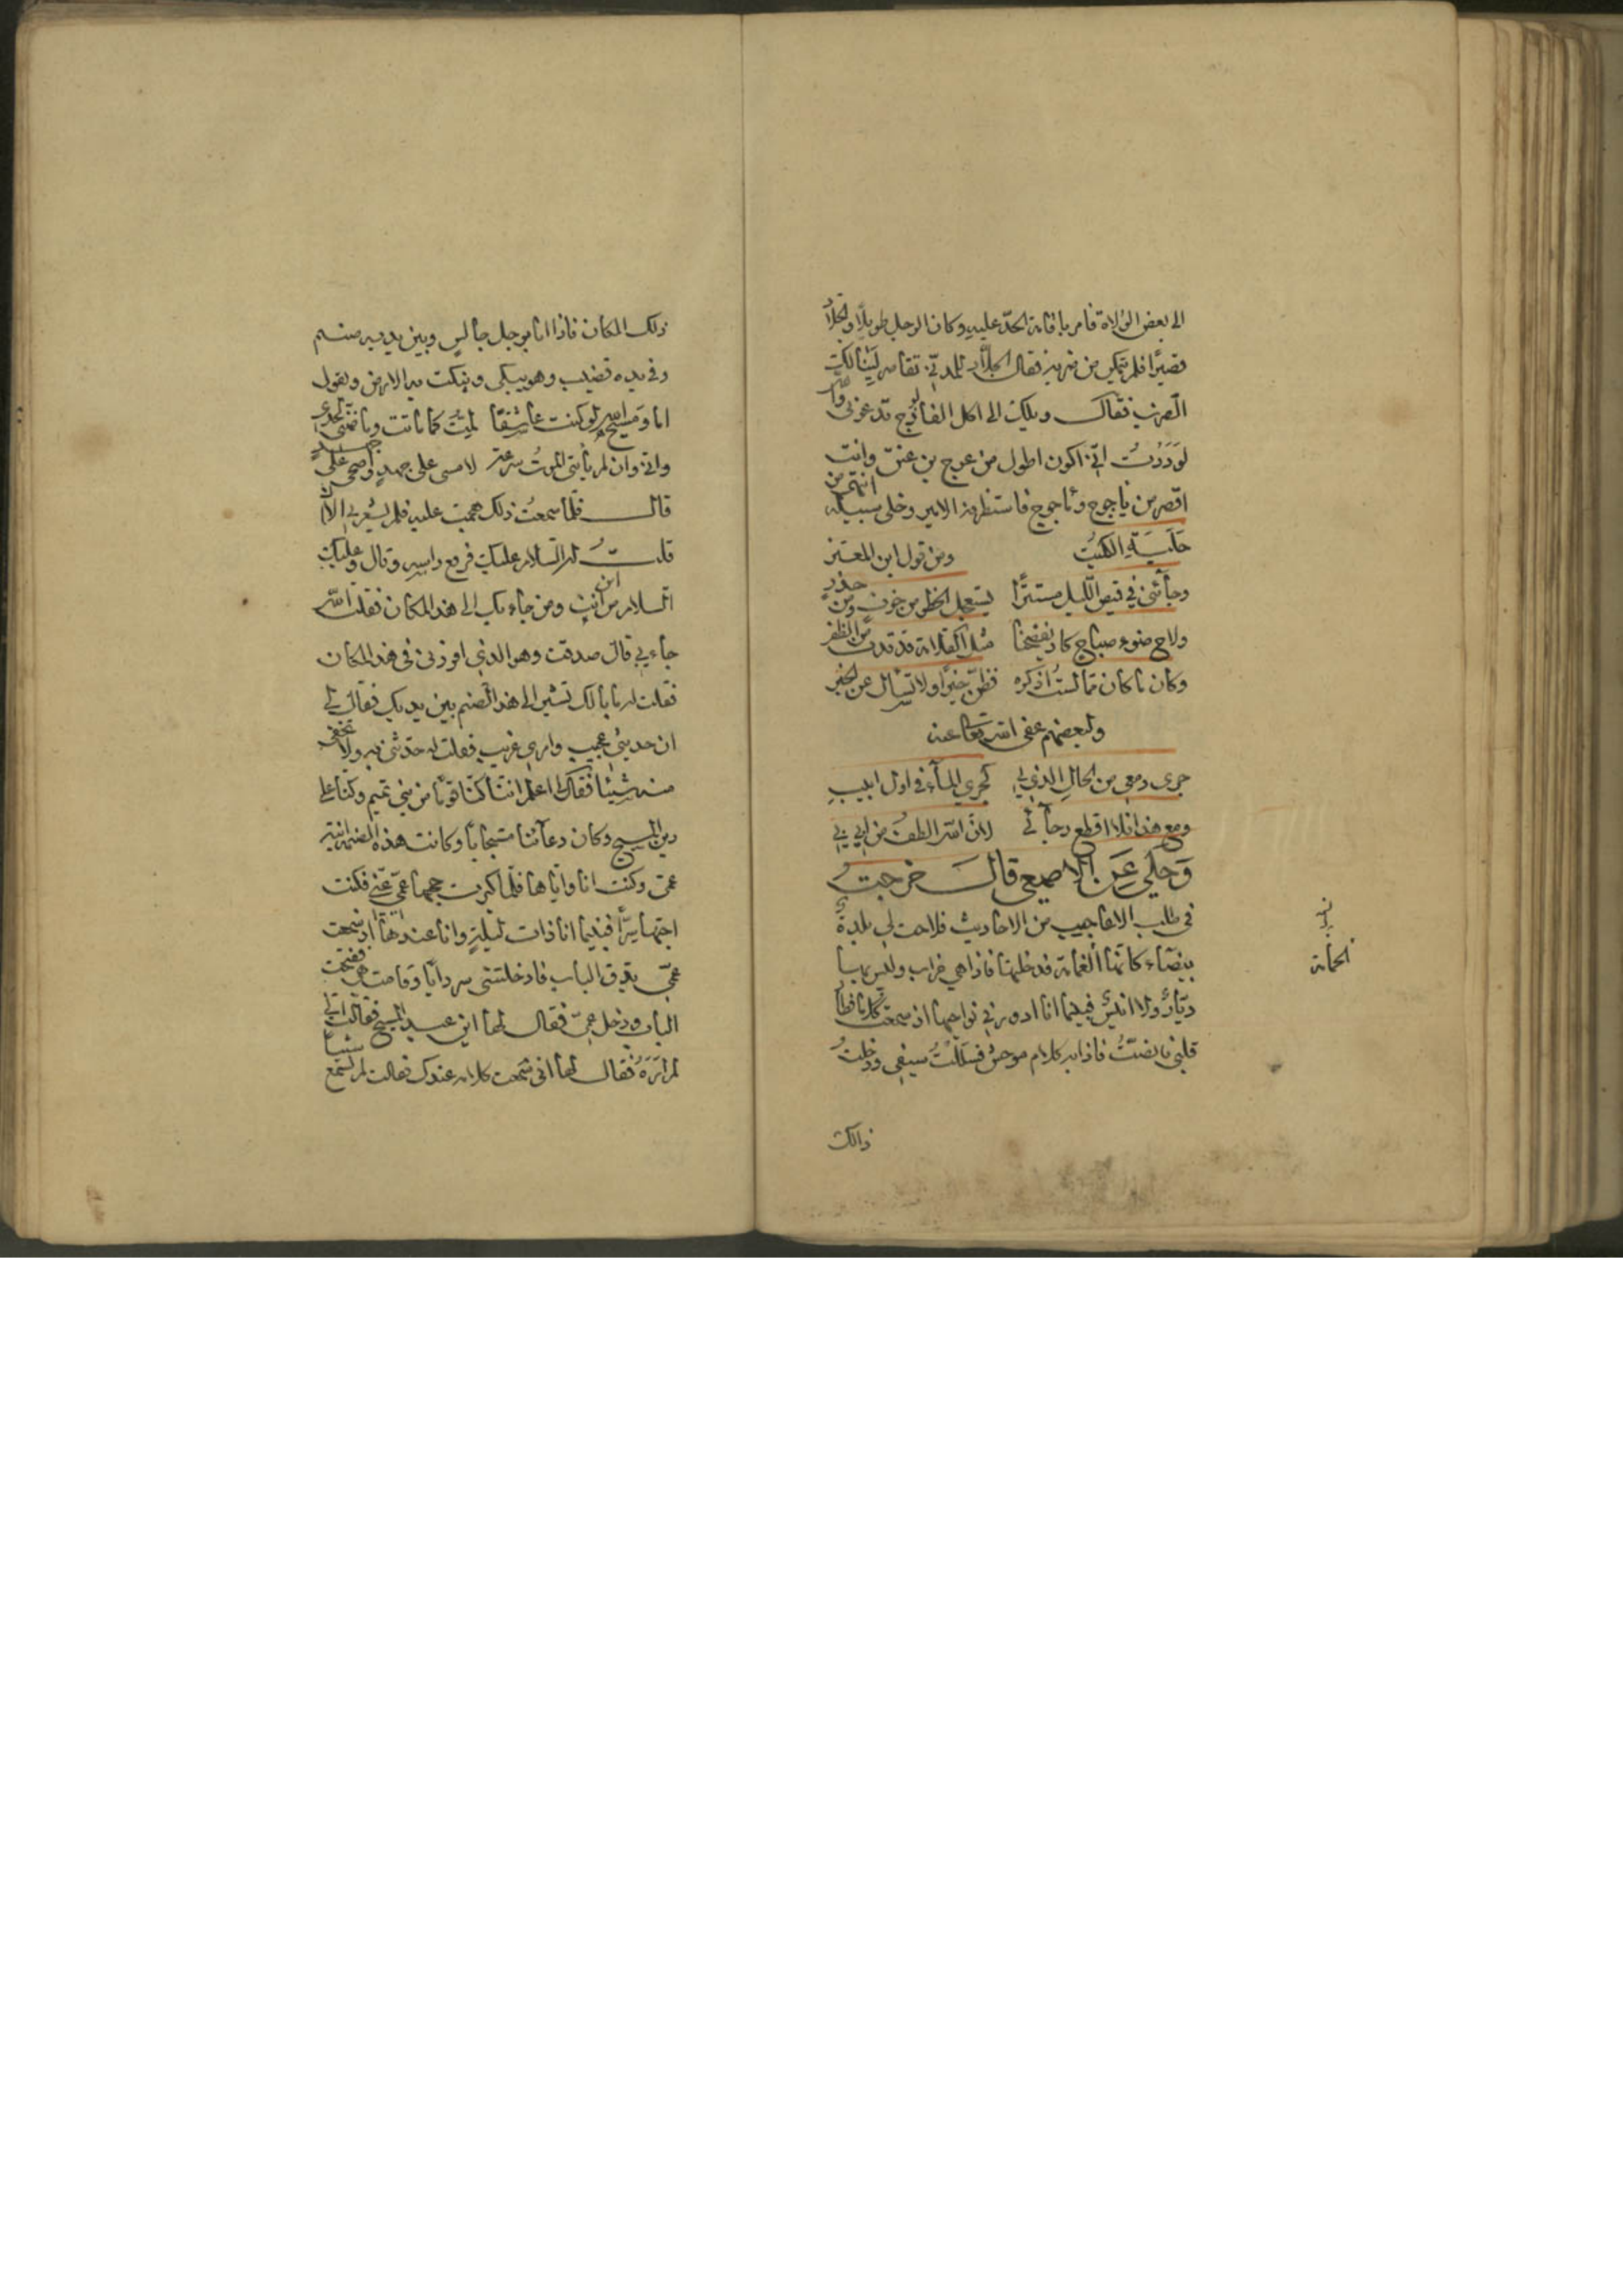 الى بعض الولاة فامر باقامة الحد عليه وكان الرجل طويلا والجلاد
قصيرا فلم يتمكن من ضربه فقال الجلاد للمدني تقاصر لينالك
الضرب فقال ويلك الى اكل الفالوذج تدعوني والله
لوددت اني اكون اطول من عوج بن عنق وانت
اقصر من ياجوج وماجوج فاستظرفه الامير وخلى سبيله
حلبة الكميت ومن قول ابن المعتز
وجآئني في قميص الليل مستترا يستعجل الخطو من خوف ومن حذر
ولاح ضوء صباح كاد يفضحنا مثل القلامة قد قدت من الظفر
وكان ما كان مما لست اذكره فظن خيرا ولا تسأل عن الخبر
ولبعضهم عفى الله تعالى عنه
جرى دمعي من الحال الذي لي كجري المآء في اول ابيب
ومع هذا فلا اقطع رجآئي لان الله الطف من ابي بي
وحكي عن الاصمعي قال خرجت
في طلب الاعاجيب من الاحاديث فلاحت لي بلدة
بيضاء كانها الغمامة فدخلتها فاذا هي خراب وليس بها
ديار ولا انيس فبينما انا ادور في نواحيها اذ سمعت كلاما
قلبي فانصتُّ فاذا به كلام موحش فسللت سيفي ودخلت
الحمامة
ذالك
ذلك المكان فاذا انا برجل جالس وبين يديه صنم
وفي يده قضيب وهو يبكي وينكت به الارض ويقول
اما ومسيح الله لو كنت عاشقا لمت كما ماتت
واني وان لم يأتني الموت سرعة لامسي على جهد واضحي على جهد
قال فلما سمعت ذلك هجمت عليه فلم يشعر بي الا ان
قلت له السلام عليك فرفع راسه وقال وعليك
السلام من اين انت ومن جاء بك الى هذا المكان فقلت الله
جاء بي قال صدقت وهو الذي افردني في هذا المكان
فقلت له ما بالك تشير الى هذا الصنم بين يديك فقال لي
ان حديثي عجيب وامري غريب فقلت له حدثني به ولا تخفي
منه شيئا فقال لي اعلم اننا كنا قوما من بني تميم وكنا على
دين المسيح وكان دعآئنا مستجابا وكانت هذه الصنم ابنة
عمي وكنت انا واياها فلما كبرت حجبها عمي عني فكنت
اجيها سرا فبينما انا ذات ليلة وانا عندها اذ سمعت
عمي يدق الباب فادخلتني سردابا وقامت هي ففتحت
الباب ودخل عمي فقال لها اين عبد المسيح فقالت اني
لم اره فقال لها اني سمعت كلامه عندك فقالت لم تسمع شيئا